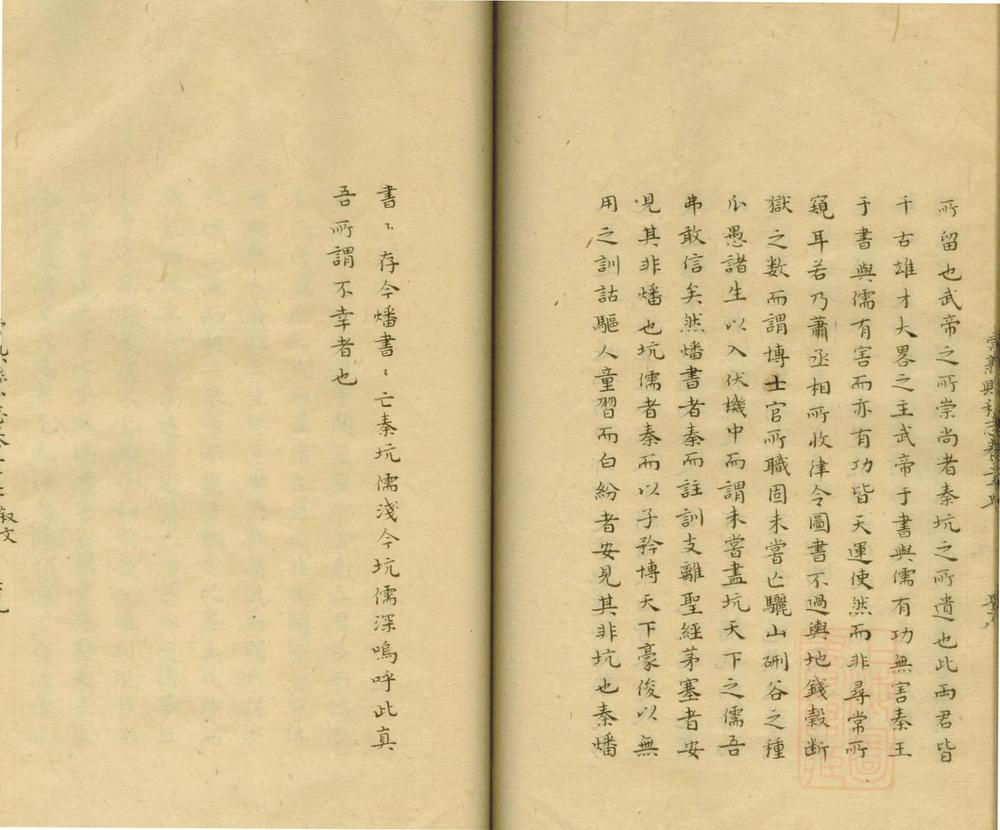 所留也武帝之所崇尚者秦坑之所遺也此兩君皆
千古雄才大畧之主武帝于書與儒有功無害秦王
于書與儒有害而亦有功皆天運使然而非尋常所
窺耳若乃蕭丞相所收律令圖書不過輿地錢穀断
獄之数而謂博士官所職固未嘗亡驪山硎谷之種
瓜愚諸生以入伏機中而謂未嘗盡坑天下之儒吾
弗敢信矣然燔書者秦而註訓支離聖經茅塞者安
見其非燔也坑儒者秦而以子矜博天下豪俊以無
用之訓詁驅人童習而白紛者安見其非坑也秦燔
書〻存今燔書〻亡秦坑儒淺今坑儒深嗚呼此真
吾所謂不幸者也
叙文